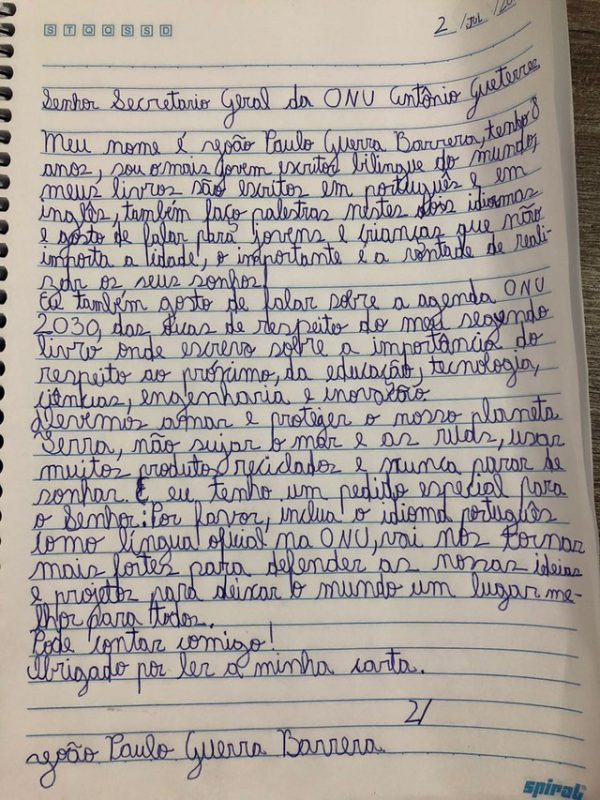 S T Q Q S S D
2 / Jul /20
Senhor Secretario Geral da ONU Antônio Gueterres
Meu nome é João Paulo Guerra Barrera, tenho 8
anos, sou o mais jovem escritor bilingue do mundo,
meus livros são escritos em português e em
inglês, também faço palestras nestes dois idiomas
e gosto de falar para jovens e crianças que não
importa a idade, o importante é a vontade de reali-
zar os seus sonhos!
Eu também gosto de falar sobre a agenda ONU
2030, das duas de respeito do meu segundo
livro onde escrevo sobre a importância do
respeito ao próximo, da educação, tecnologia,
ciências, engenharia e inovação
Devemos amar e proteger o nosso planeta
Terra, não sujar o mar e as ruas, usar
muitos produtos reciclados e nunca parar de
sonhar. E eu tenho um pedido especial para
o Senhor: Por favor, inclua o idioma português
como língua oficial na ONU, vai nos tornar
mais fortes para defender as nossas ideias
e projetos para deixar o mundo um lugar me-
lhor para todos.
Pode contar comigo!
Obrigado por ler a minha carta.
2/
João Paulo Guerra Barrera
spiral